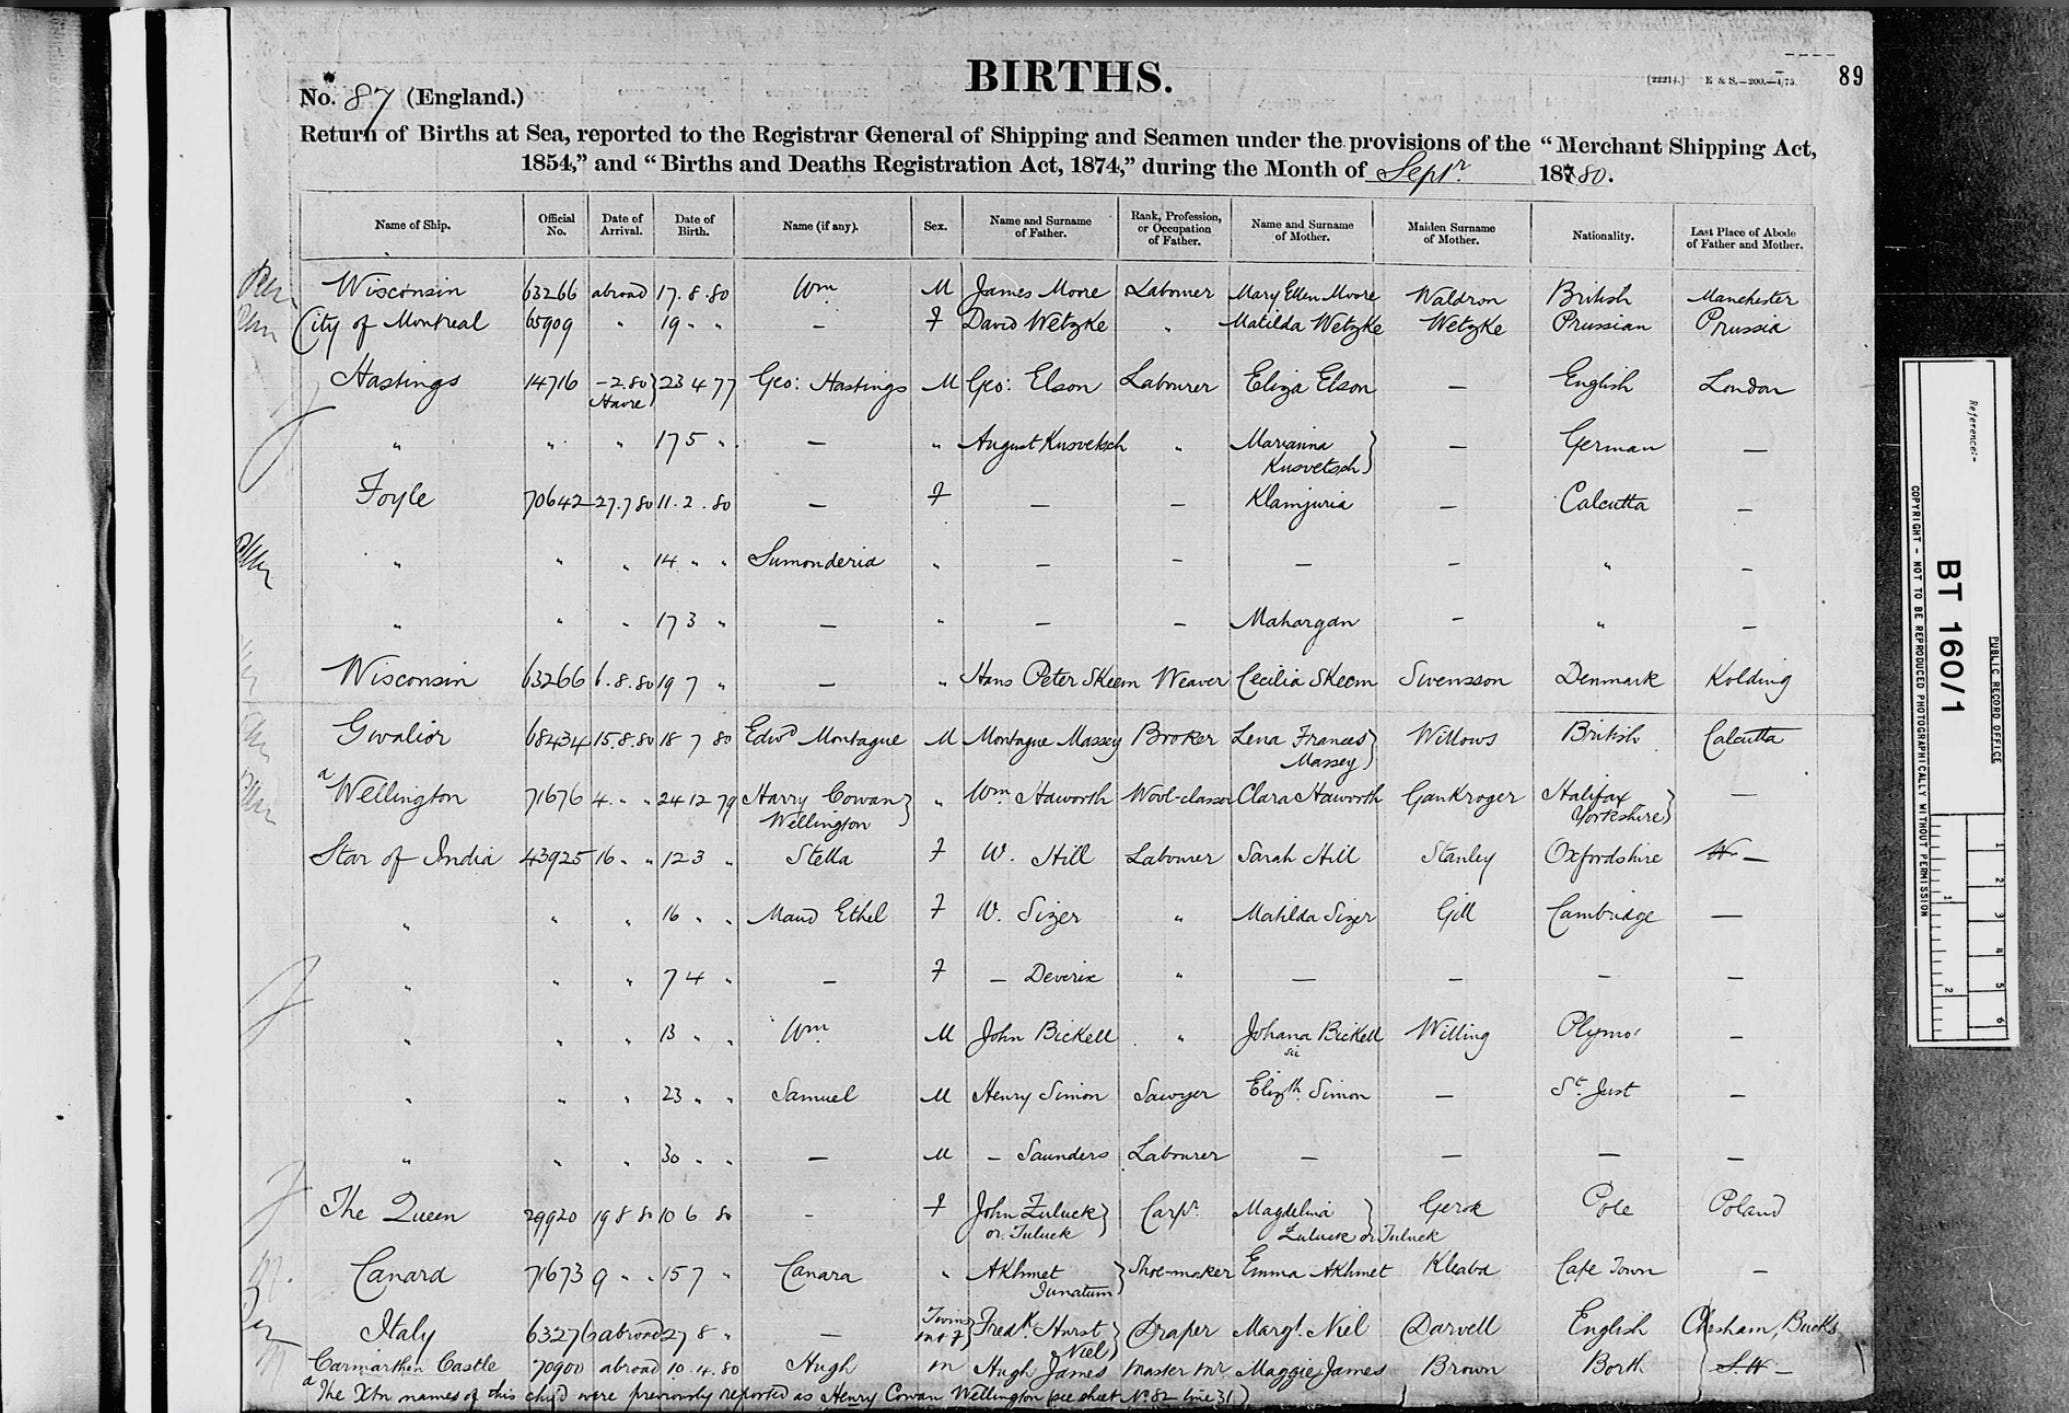 BIRTHS.
[22214.] E & S.—200.—4/75.
89
No. 87 (England.)
Return of Births at Sea, reported to the Registrar General of Shipping and Seamen under the provisions of the “Merchant Shipping Act,
1854,” and “Births and Deaths Registration Act, 1874,” during the Month of Septr. 1880.
Name of Ship. Official No. Date of Arrival. Date of Birth. Name (if any). Sex. Name and Surname of Father. Rank, Profession, or Occupation of Father. Name and Surname of Mother. Maiden Surname of Mother. Nationality. Last Place of Abode of Father and Mother.
Wisconsin 63266 abroad 17.8.80 Wm. M James Moore Labourer Mary Ellen Moore Waldron British Manchester
City of Montreal 65909 " 19 " " — F David Wetzke " Matilda Wetzke Wetzke Prussian Prussia
Hastings 14716 -2.80 Havre } 23 4 77 Geo: Hastings M Geo: Elson Labourer Eliza Elson — English London
" " " 17 5 " — " August Kusvetsch " Marianna Kusvetsch } — German —
Foyle 70642 27.7 80 11.2.80 — F — — Klamjuria — Calcutta —
" " " 14 " " Sumonderia " — — — — " —
" " " 17 3 " — " — — Mahargan — " —
Wisconsin 63266 6.8.80 19 7 " — " Hans Peter Skeem Weaver Cecilia Skeem Swensson Denmark Kolding
Gwalior 68434 15.8.80 18 7 80 Edwd Montague M Montague Massey Broker Lena Frances Massey } Willows British Calcutta
a Wellington 71676 4 " " 24 12 79 Harry Cowan Wellington } " Wm. Haworth Wool-classer Clara Haworth Gankroger Halifax Yorkshire } —
Star of India 43925 16 " " 12 3 " Stella F W. Hill Labourer Sarah Hill Stanley Oxfordshire —
" " " 16 " " Maud Ethel F W. Sizer " Matilda Sizer Gill Cambridge —
" " " 7 4 " — F — Deverix " — — — —
" " " 13 " " Wm. M John Bickell " Johana Bickell sic Willing Plymo' —
" " " 23 " " Samuel M Henry Simon Sawyer Elizth. Simon — St. Just —
" " " 30 " " — M — Saunders Labourer — — — —
The Queen 29920 19 8 80 10 6 80 — F John Zuluck or Tuluck } Carpr. Magdelina Zuluck or Tuluck } Gerok Pole Poland
Canara 71673 9 " " 15 7 " Canara " Akhmet Junatum } Shoe-maker Emma Akhmet Kleabd Cape Town —
Italy 63276 abroad 27 8 " — Twins m & f } Fredk. Hurst Niel } Draper Margt. Niel Darvell English Chesham, Bucks
Carmarthen Castle 70900 abroad 10.4.80 Hugh m Hugh James Master Mr. Maggie James Brown Borth —
a The Xtn names of this child were previously reported as Henry Cowan Wellington (see sheet No 82 line 31)
Reference:-
PUBLIC RECORD OFFICE
BT 160/1
COPYRIGHT - NOT TO BE REPRODUCED PHOTOGRAPHICALLY WITHOUT PERMISSION
1 2 3 4 5 6
1 2